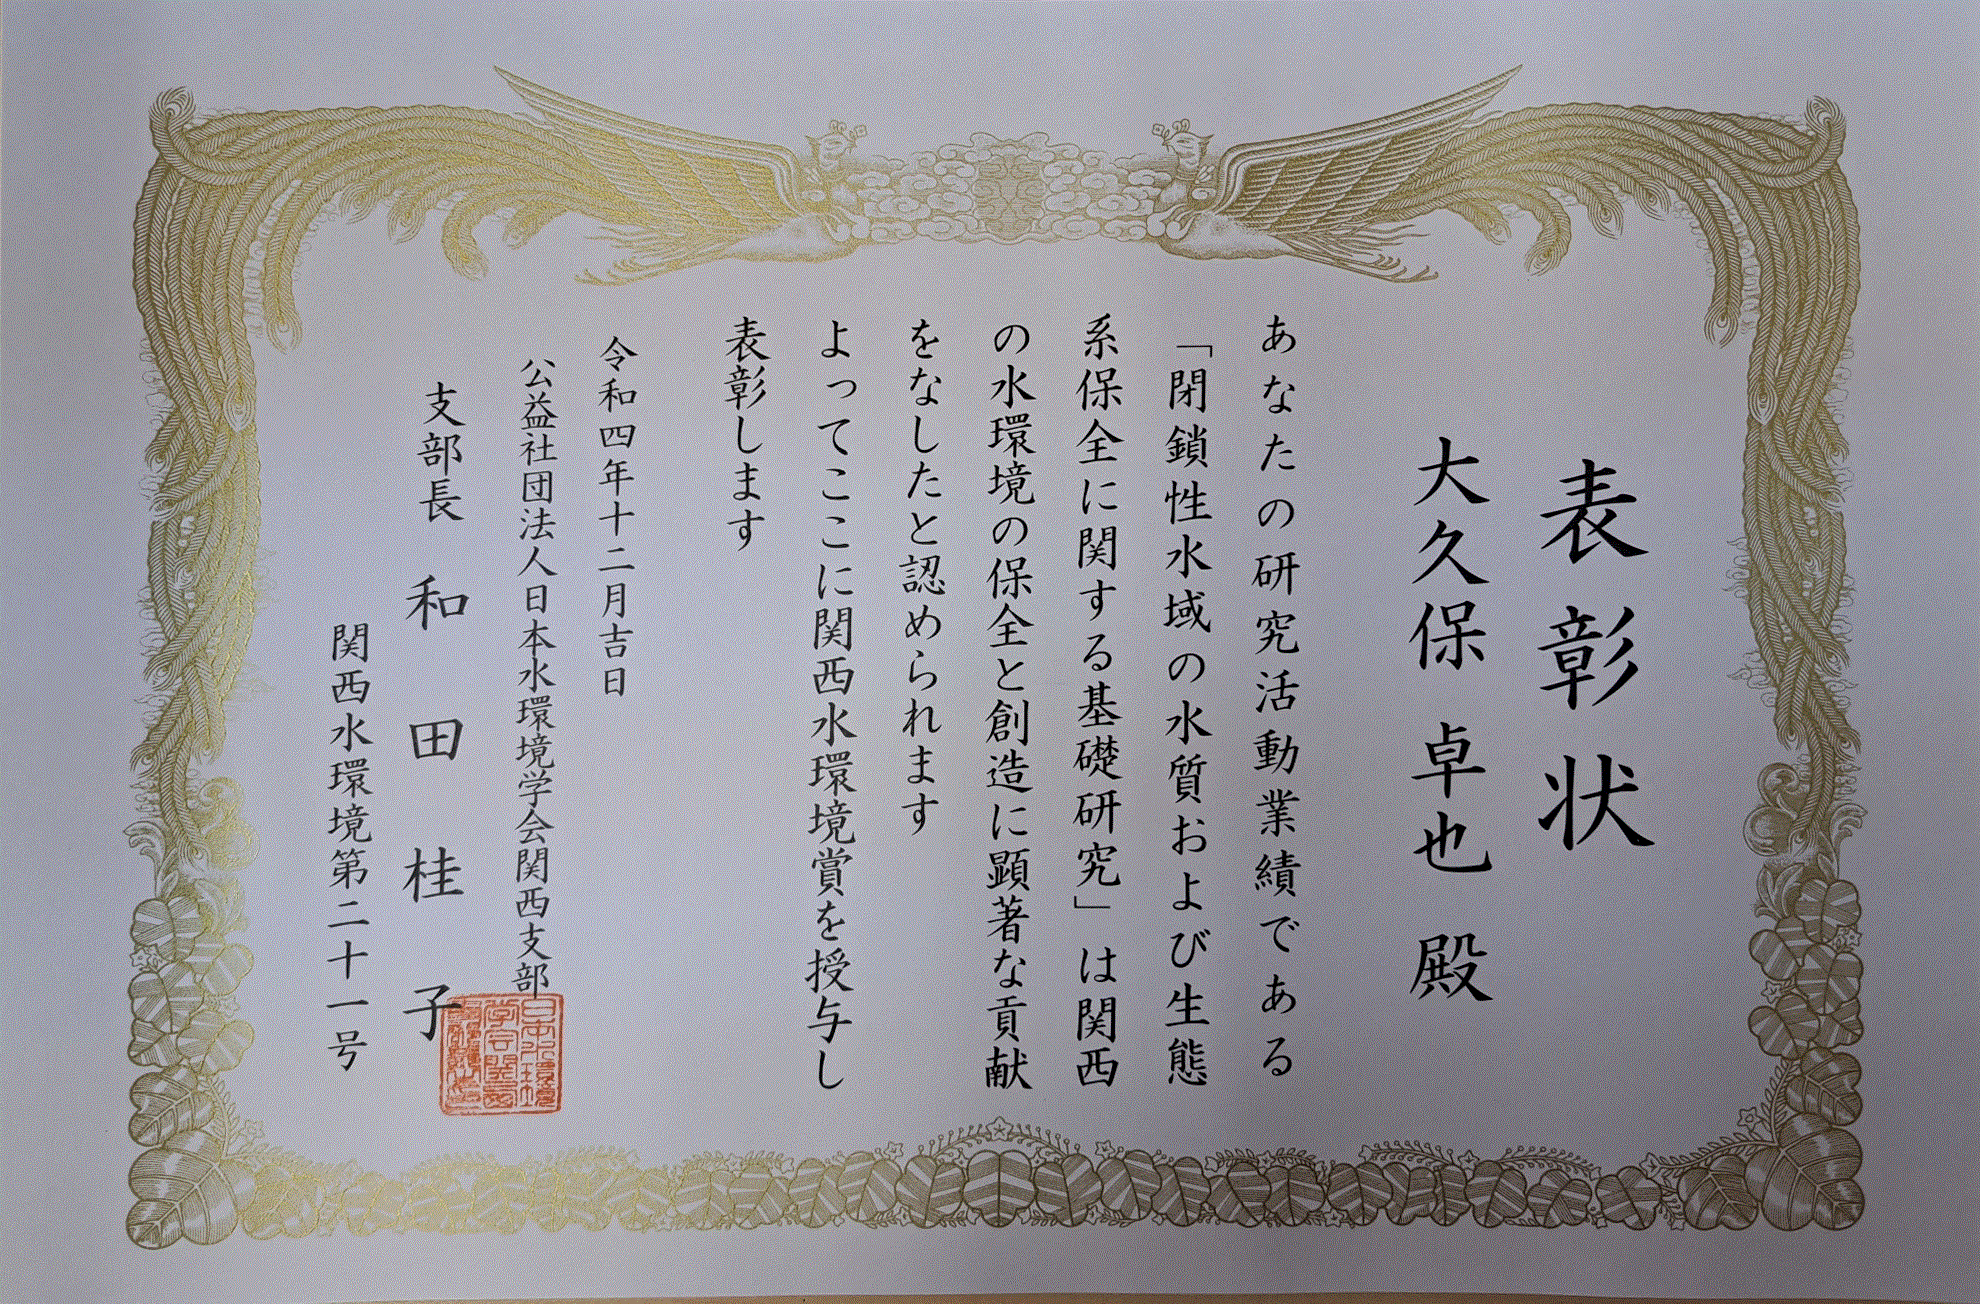 表彰状
大久保 卓也 殿
あなたの研究活動業績である
「閉鎖性水域の水質および生態
系保全に関する基礎研究」は関西
の水環境の保全と創造に顕著な貢献
をなしたと認められます
よってここに関西水環境賞を授与し
表彰します
令和四年十二月吉日
公益社団法人日本水環境学会関西支部
支部長 和田 桂子
関西水環境第二十一号